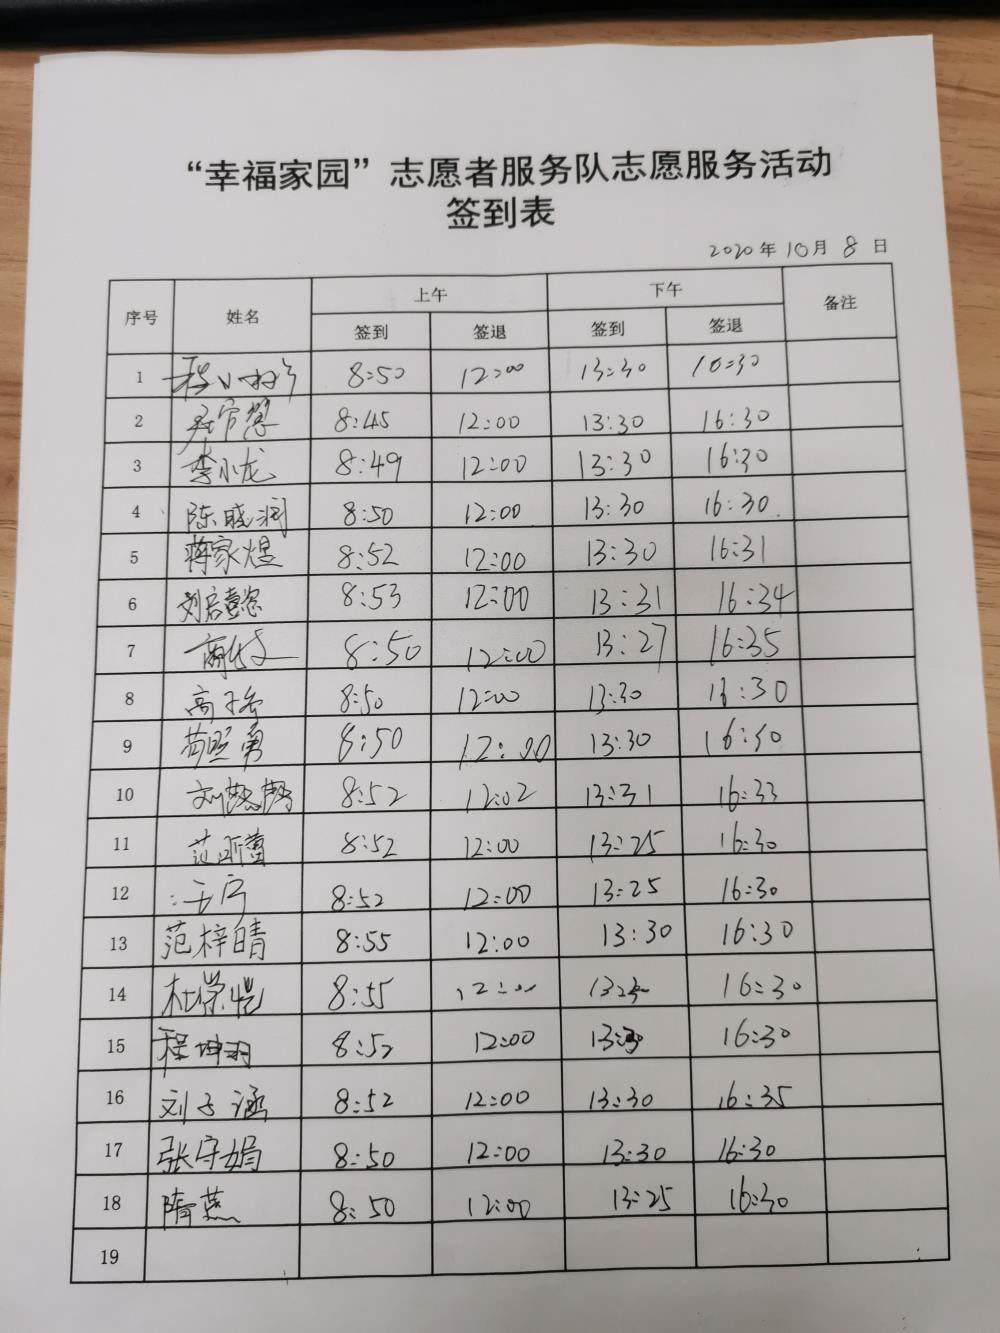 “幸福家园”志愿者服务队志愿服务活动
签到表
2020年10月8日
序号 姓名 上午 下午 备注
签到 签退 签到 签退
1 8:50 12:00 13:30 16:30
2 8:45 12:00 13:30 16:30
3 李小龙 8:49 12:00 13:30 16:30
4 陈晓润 8:50 12:00 13:30 16:30
5 蒋家煜 8:52 12:00 13:30 16:31
6 8:53 12:00 13:31 16:34
7 8:50 12:00 13:27 16:35
8 8:50 12:00 13:30 16:30
9 8:50 12:00 13:30 16:30
10 8:52 12:02 13:31 16:33
11 8:52 12:00 13:25 16:30
12 8:52 12:00 13:25 16:30
13 范梓晴 8:55 12:00 13:30 16:30
14 8:55 12:00 16:30
15 8:52 12:00 16:30
16 刘子涵 8:52 12:00 13:30 16:35
17 张守娟 8:50 12:00 13:30 16:30
18 隋燕 8:50 12:00 13:25 16:30
19